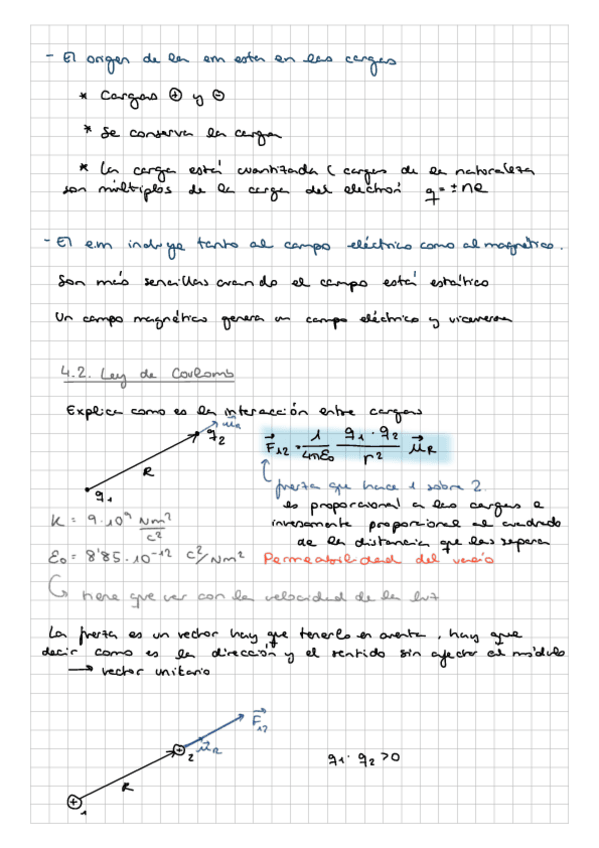 - El origen de la em esta en las cargas
* Cargas ⊕ y ⊖
* Se conserva la carga
* La carga está cuantizada ( cargas de la naturaleza
son múltiplos de la carga del electrón q = ± ne
- El em incluye tanto al campo eléctrico como al magnético.
Son más sencillas cuando el campo está estático
Un campo magnético genera un campo eléctrico y viceversa
4.2. Ley de Coulomb
Explica como es la interacción entre cargas
q1 R q2 u⃗R
F⃗12 = 1/4πε0 q1 · q2/r² u⃗R
fuerza que hace 1 sobre 2.
es proporcional a las cargas e
inversamente proporcional al cuadrado
de la distancia que las separa
K = 9·10⁹ Nm²/C²
ε0 = 8'85·10⁻¹² C²/Nm² Permeabilidad del vacío
tiene que ver con la velocidad de la luz
La fuerza es un vector hay que tenerlo en cuenta, hay que
decir como es la dirección y el sentido sin afectar al módulo
→ vector unitario
⊕1 R ⊕2 u⃗R F⃗12
q1 · q2 > 0